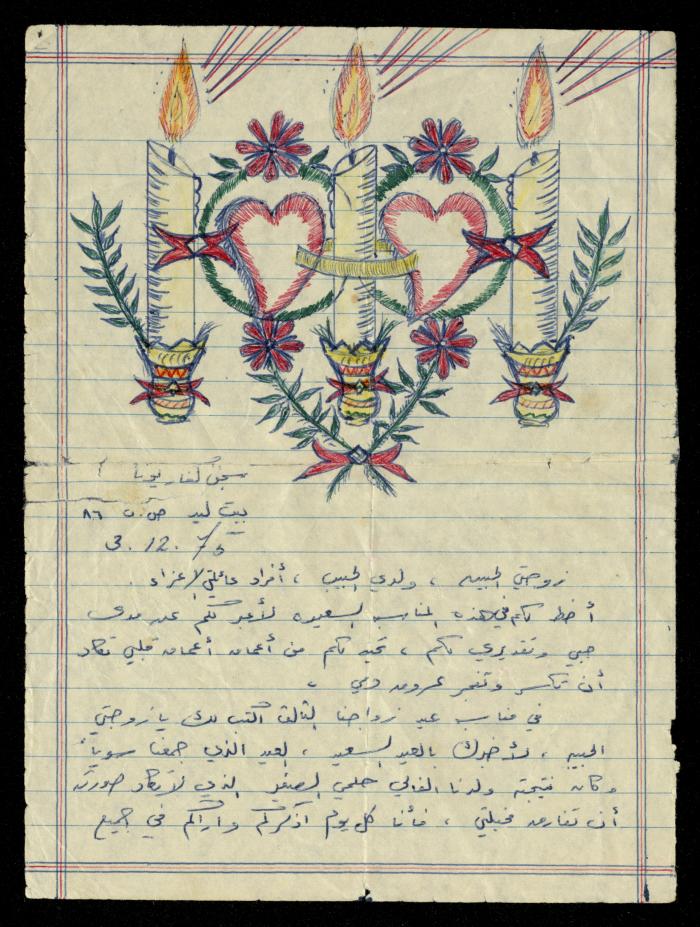 سجن كفار يونا
بيت ليد ص.ب ٨٦
3.12.75
زوجتي الحبيبه ، ولدي الحبيب ، أفراد عائلتي الاعزاء
أخط لكم في هذه المناسبه السعيده لأعبر لكم عن مدى
حبي وتقديري لكم ، تحيه لكم من أعماق أعماق قلبي تكاد
أن تكسر وتفجر عروق دمي ،
في مناسبه عيد زواجنا الثالث اكتب لك يا زوجتي
الحبيبه ، لأخبرك بالعيد السعيد ، العيد الذي جمعنا سوياً
وكان نتيجته ولدنا الغالي حلمي الصغير الذي لا تكاد صورته
أن تفارق مخيلتي ، فأنا كل يوم اذكركم واراكم في جميع